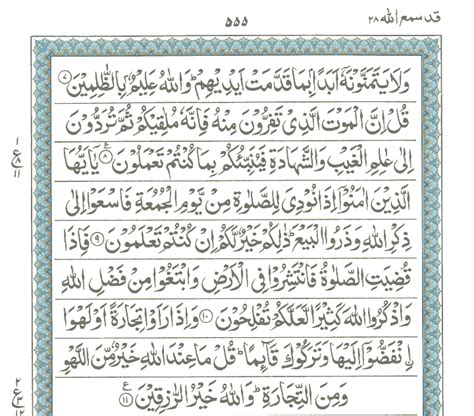 قد سمع الله ٢٨
٥٥٥
وَلَا يَتَمَنَّوْنَهٗۤ اَبَدًۢا بِمَا قَدَّمَتْ اَيْدِيْهِمْ ؕ وَاللّٰهُ عَلِيْمٌۢ بِالظّٰلِمِيْنَ ﴿۷﴾
قُلْ اِنَّ الْمَوْتَ الَّذِيْ تَفِرُّوْنَ مِنْهُ فَاِنَّهٗ مُلٰقِيْكُمْ ثُمَّ تُرَدُّوْنَ
اِلٰى عٰلِمِ الْغَيْبِ وَالشَّهَادَةِ فَيُنَبِّئُكُمْ بِمَا كُنْتُمْ تَعْمَلُوْنَ ﴿۸﴾ ع يٰۤاَيُّهَا
١
ع
٨
١١
الَّذِيْنَ اٰمَنُوْۤا اِذَا نُوْدِيَ لِلصَّلٰوةِ مِنْ يَّوْمِ الْجُمُعَةِ فَاسْعَوْا اِلٰى
ذِكْرِ اللّٰهِ وَذَرُوا الْبَيْعَ ؕ ذٰلِكُمْ خَيْرٌ لَّكُمْ اِنْ كُنْتُمْ تَعْلَمُوْنَ ﴿۹﴾ فَاِذَا
قُضِيَتِ الصَّلٰوةُ فَانْتَشِرُوْا فِي الْاَرْضِ وَابْتَغُوْا مِنْ فَضْلِ اللّٰهِ
وَاذْكُرُوا اللّٰهَ كَثِيْرًا لَّعَلَّكُمْ تُفْلِحُوْنَ ﴿۱۰﴾ وَاِذَا رَاَوْا تِجَارَةً اَوْ لَهْوَا
ۨانْفَضُّوْۤا اِلَيْهَا وَتَرَكُوْكَ قَآئِمًا ؕ قُلْ مَا عِنْدَ اللّٰهِ خَيْرٌ مِّنَ اللَّهْوِ
وَمِنَ التِّجَارَةِ ؕ وَاللّٰهُ خَيْرُ الرّٰزِقِيْنَ ﴿۱۱﴾ ع
٢
ع
٣
١٢